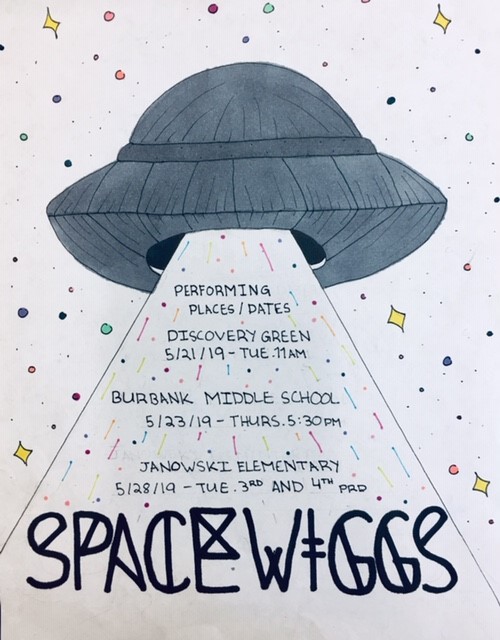 PERFORMING
PLACES/DATES
DISCOVERY GREEN
5/21/19-TUE.11AM
BURBANK MIDDLE SCHOOL
5/23/19-THURS.5:30PM
JANOWSKI ELEMENTARY
5/28/19-TUE.3RD AND 4TH PRD
SPACEWIGGS